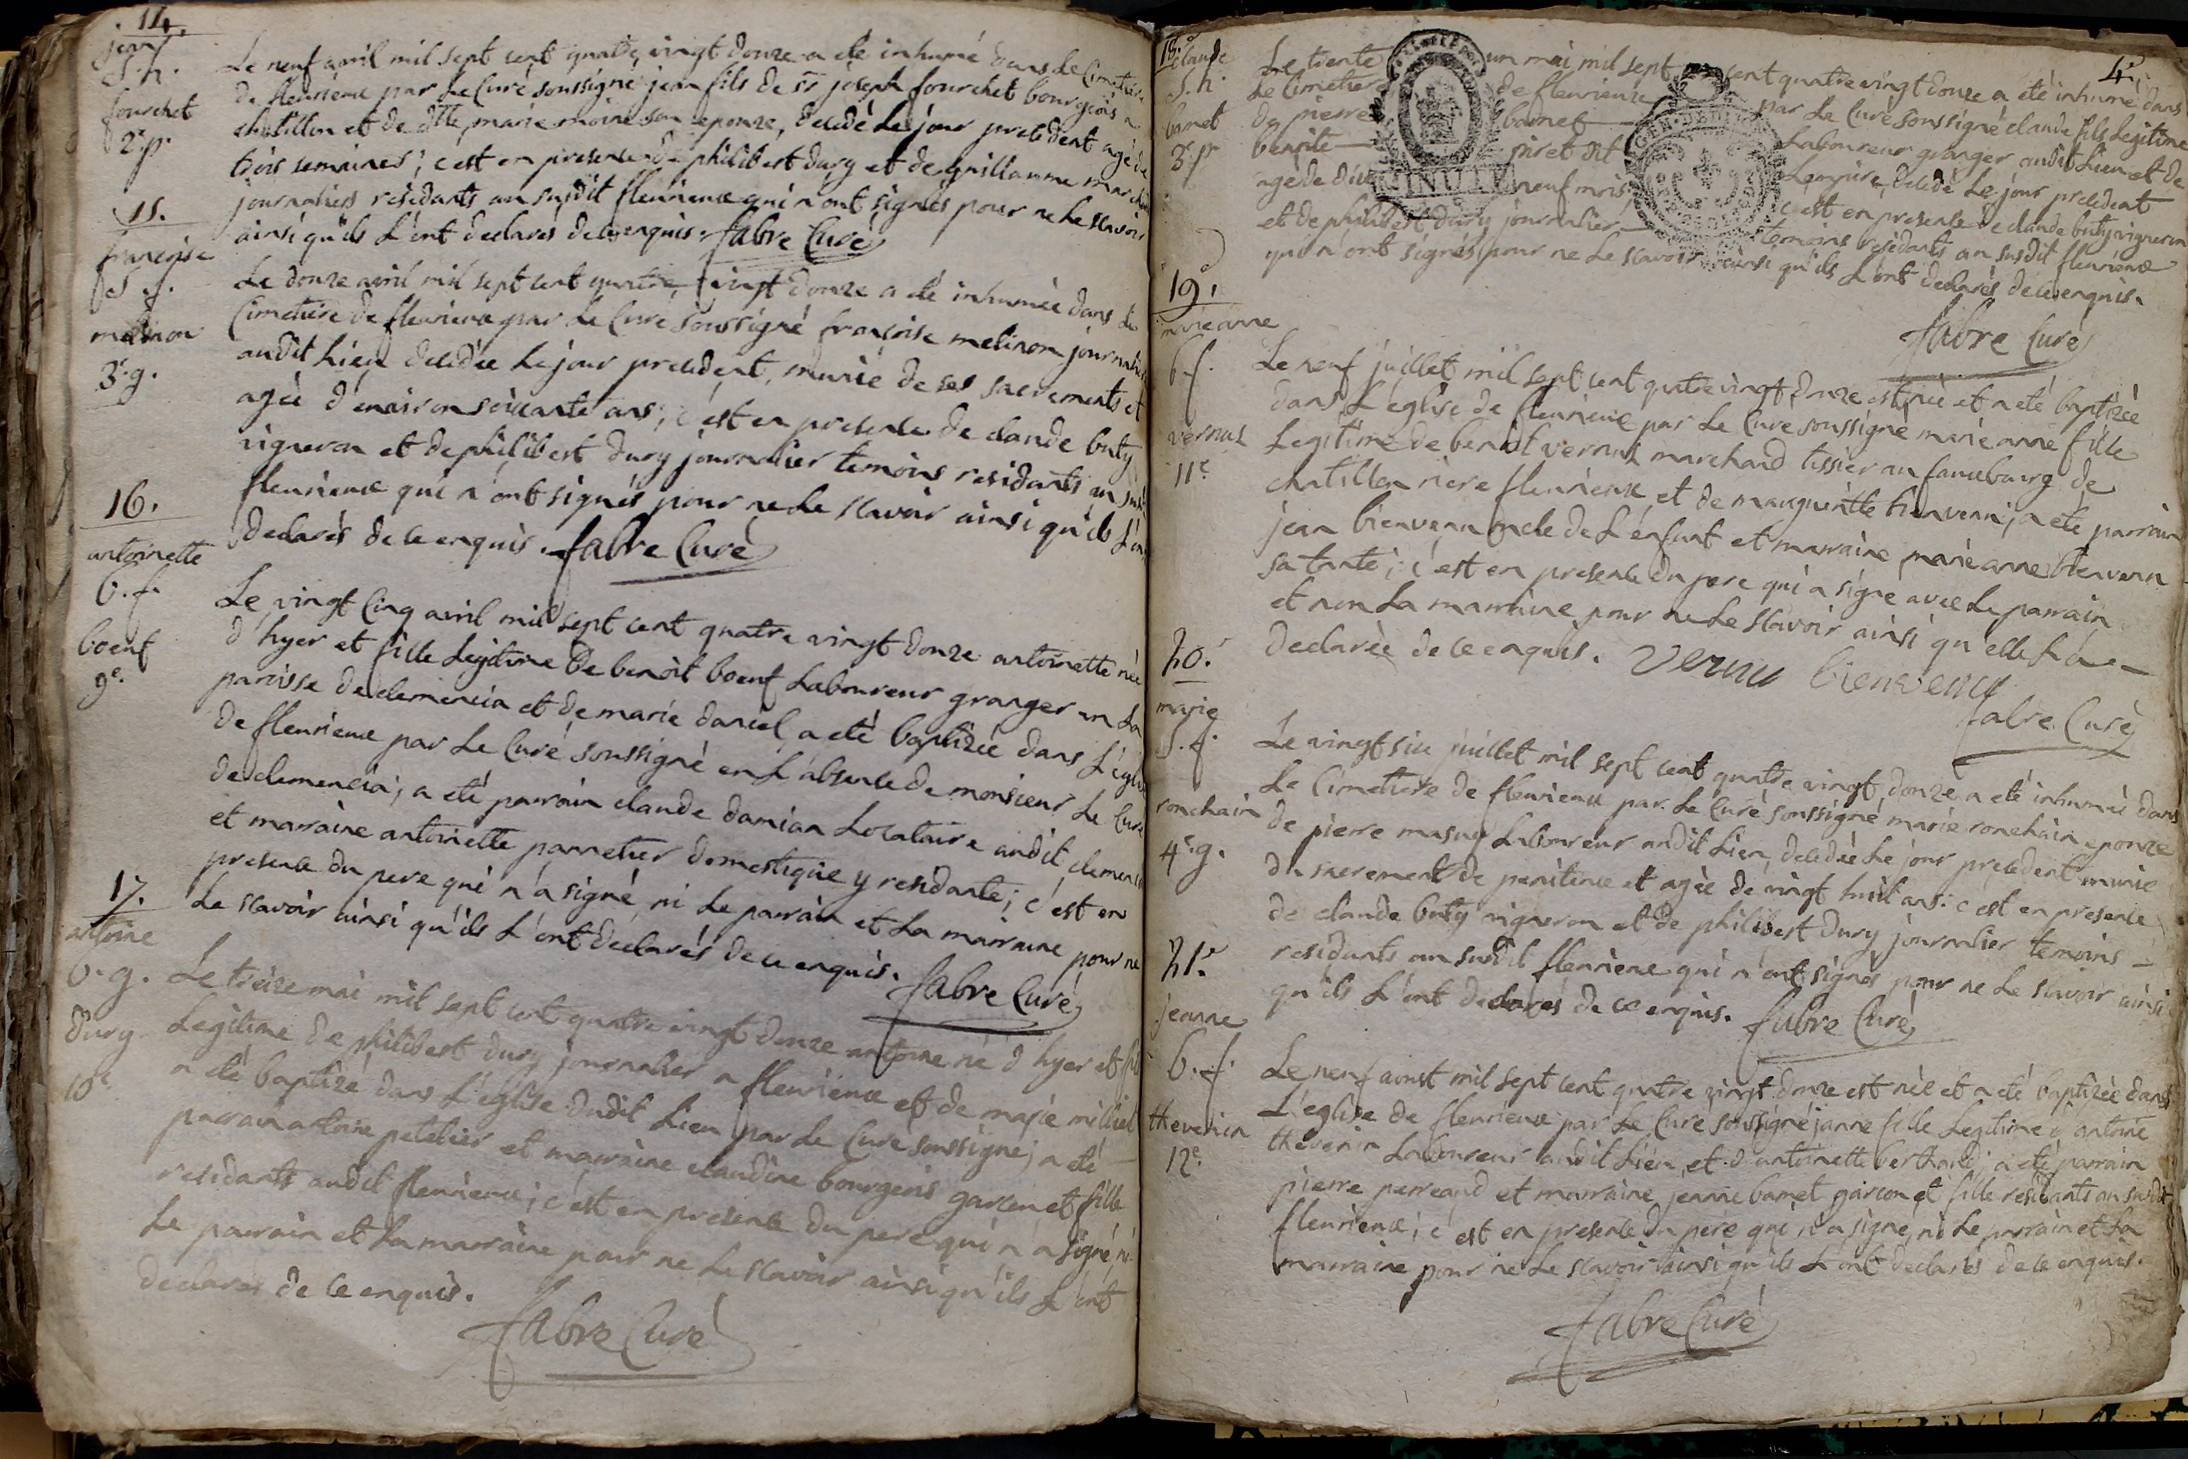 14.
jean
S. h.
fourchet
2e. p.
Le neuf avril mil sept cent quatre vingt douze a eté inhumé dans Le Cimetiere
de fleurieux par Le Curé soussigné jean fils de sr joseph fourchet bourgeois a
chatillon et de dlle marie moine son epouze, decedé Le jour precedent agé de
trois semaines; c'est en presence de philibert dury et de guillaume
journaliers residants au susdit fleurieux qui n'ont signés pour ne Le scavoir
ainsi qu'ils L'ont declarés de ce enquis. fabre Curé
15.
françoise
S. f.
melinon
3e. g.
Le douze avril mil sept cent quatre vingt douze a eté inhumée dans Le
Cimetiere de fleurieux par Le Curé soussigné françoise melinon journaliere
audit Lieu decedée Le jour precedent, munie de ses sacrements et
agée d'environ soixante ans; c'est en presence de claude buty
vigneron et de philibert dury journalier temoins residants au susdit
fleurieux qui n'ont signés pour ne Le scavoir ainsi qu'ils L'ont
declarés de ce enquis. fabre Curé
16.
antoinette
b. f.
boeuf
9e.
Le vingt cinq avril mil sept cent quatre vingt douze antoinette née
d'hyer et fille Legitime de benoit boeuf Laboureur granger en La
paroisse de clemencia et de marie daniel, a eté baptizée dans L'eglise
de fleurieux par Le Curé soussigné en L'absence de monsieur Le Curé
de clemencia; a eté parrain claude damian Locataire audit clemencia
et marraine antoinette pannetier domestique y residante; c'est en
presence du pere qui n'a signé ni Le parrain et La marraine pour ne
Le scavoir ainsi qu'ils L'ont declarés de ce enquis. fabre Curé
17.
antoine
b. g.
dury
10e.
Le treize mai mil sept cent quatre vingt douze antoine né d'hyer et fils
Legitime de philibert dury journalier a fleurieux et de marie
a eté baptizé dans L'eglise dudit Lieu par Le Curé soussigné; a eté
parrain antoine petelier et marraine claudine bourgeois garcon et fille
residants audit fleurieux; c'est en presence du pere qui n'a signé, ni
Le parrain et La marraine pour ne Le scavoir ainsi qu'ils L'ont
declarés de ce enquis.
fabre Curé
4e.
18.
claude
S. h.
bamet
3e. p.
Le trente un mai mil sept cent quatre vingt douze a eté inhumé dans
Le Cimetiere de fleurieux par Le Curé soussigné claude fils Legitime
de pierre bamet Laboureur granger audit Lieu et de
benoite piret dit decedé Le jour precedent
agé de dix neuf mois c'est en presence de claude buty vigneron
et de philibert dury journalier temoins residants au susdit fleurieux
qui n'ont signés pour ne Le scavoir ainsi qu'ils L'ont declarés de ce enquis.
fabre Curé
19.
marie anne
b. f.
vernus
11e.
Le neuf juillet mil sept cent quatre vingt douze est née et a eté baptizée
dans L'eglise de fleurieux par Le Curé soussigné marie anne fille
Legitime de benoit vernus marchand tissier au fauxbourg de
chatillon riere fleurieux et de marguerite bienvenu; a eté parrain
jean bienvenu oncle de L'enfant et marraine marie anne bienvenu
sa tante; c'est en presence du pere qui a signé avec Le parrain
et non La marraine pour ne Le scavoir ainsi qu'elle L'a
declarée de ce enquis. vernu bienvenu
fabre Curé
20.
marie
S. f.
ronchain
4e. g.
Le vingt six juillet mil sept cent quatre vingt douze a eté inhumée dans
Le Cimetiere de fleurieux par Le Curé soussigné marie ronchain epouze
de pierre masuy Laboureur audit Lieu, decedée Le jour precedent munie
du sacrement de penitence et agée de vingt huit ans: c'est en presence
de claude buty vigneron et de philibert dury journalier temoins
residants au susdit fleurieux qui n'ont signés pour ne Le scavoir ainsi
qu'ils L'ont declarés de ce enquis. fabre Curé
21.
jeanne
b. f.
thevenin
12e.
Le neuf aoust mil sept cent quatre vingt douze est née et a eté baptizée dans
L'eglise de fleurieux par Le Curé soussigné janne fille Legitime d'antoine
thevenin Laboureur audit Lieu, et d'antoinette berthaud; a eté parrain
pierre perreaud et marraine jeanne bamet garcon et fille residants au susdit
fleurieux; c'est en presence du pere qui n'a signé, ni Le parrain et La
marraine pour ne Le scavoir ainsi qu'ils L'ont declarés de ce enquis.
fabre Curé